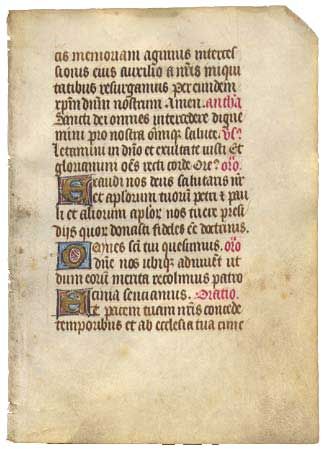 cis memoriam agimus interces
sionis eius auxilio a nris iniqui
tatibus resurgamus Per eundem
xpm dnm nostrum Amen. antha
Sancti dei omnes intercedere digne
mini pro nostra omniq; salute. Vs.
Letamini in dno et exultate iusti Et
gloriamini oes recti corde Ore? oro.
Exaudi nos deus salutaris nr
et aplorum tuorum petri et pau
li et aliorum aplor nos tuere presi
dijs quor donasti fideles ee doctrinis.
Omnes sci tui quesumus. oro
dne nos ubiq; adiuuent ut
dum eorum merita recolimus patro
cinia senciamus. Oratio.
Et pacem tuam nris concede
temporibus et ab ecclesia tua cunc